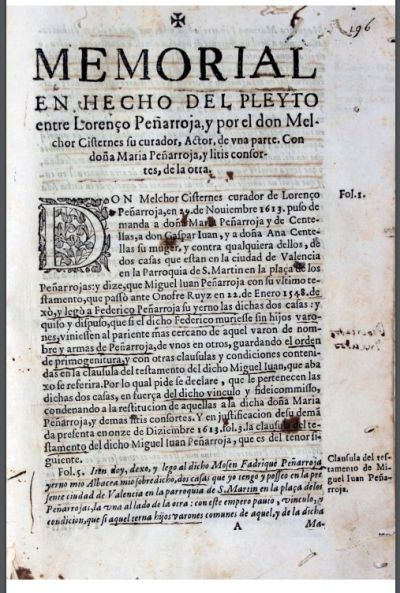 196
MEMORIAL
EN HECHO DEL PLEYTO
entre Lorenço Peñarroja, y por el don Mel-
chor Cisternes su curador, Actor, de vna parte. Con
doña Maria Peñarroja, y litis consor-
tes, de la otra.
DON Melchor Cisternes curador de Lorenço
Peñarroja, en 29. de Nouiembre 1613. puso de
manda a doña Maria Peñarroja y de Cente-
llas, a don Gaspar Iuan, y a doña Ana Cente-
llas su muger, y contra qualquiera dellos, de
dos casas que estan en la ciudad de Valencia
en la Parroquia de S. Martin en la plaça de los
Peñarrojas: y dize, que Miguel Iuan Peñarroja con su vltimo te-
stamento, que passò ante Onofre Ruyz en 22. de Enero 1548. de
xò, y legò a Federico Peñarroja su yerno las dichas dos casas: y
quiso y dispuso, que si el dicho Federico muriesse sin hijos varo-
nes, viniessen al pariente mas cercano de aquel varon de nombre
y armas de Peñarroja, de vnos en otros, guardando el orden
de primogenitura, y con otras clausulas y condiciones conteni-
das en la clausula del testamento del dicho Miguel Iuan, que aba
xo se referira. Por lo qual pide se declare, que le pertenecen las
dichas dos casas, en fuerça del dicho vinculo y fideicommisso,
condenando a la restitucion de aquellas a la dicha doña Maria
Peñarroja, y demas litis consortes. Y en justificacion desu demã
da presenta en onze de Diziembre 1613. fol. 3. la clausula del te-
stamento del dicho Miguel Iuan Peñarroja, que es del tenor si-
guiente.
Fol. 5. Iten doy, dexo, y lego al dicho Mosen Fadrique Peñarroja
yerno mio Albacea mio sobredicho, dos casas que yo tengo y posseo en la pre
sente ciudad de Valencia en la parroquia de S. Martin en la plaça de los
Peñarrojas, la vna al lado de la otra: con este empero pauto, vinculo, y
condicion, que si aquel terna hijos varones comunes de aquel, y de la dicha
A Ma-
Fol. 1.
Clausula del tes-
tamento de Mi-
guel Iuan Peña-
rroja.